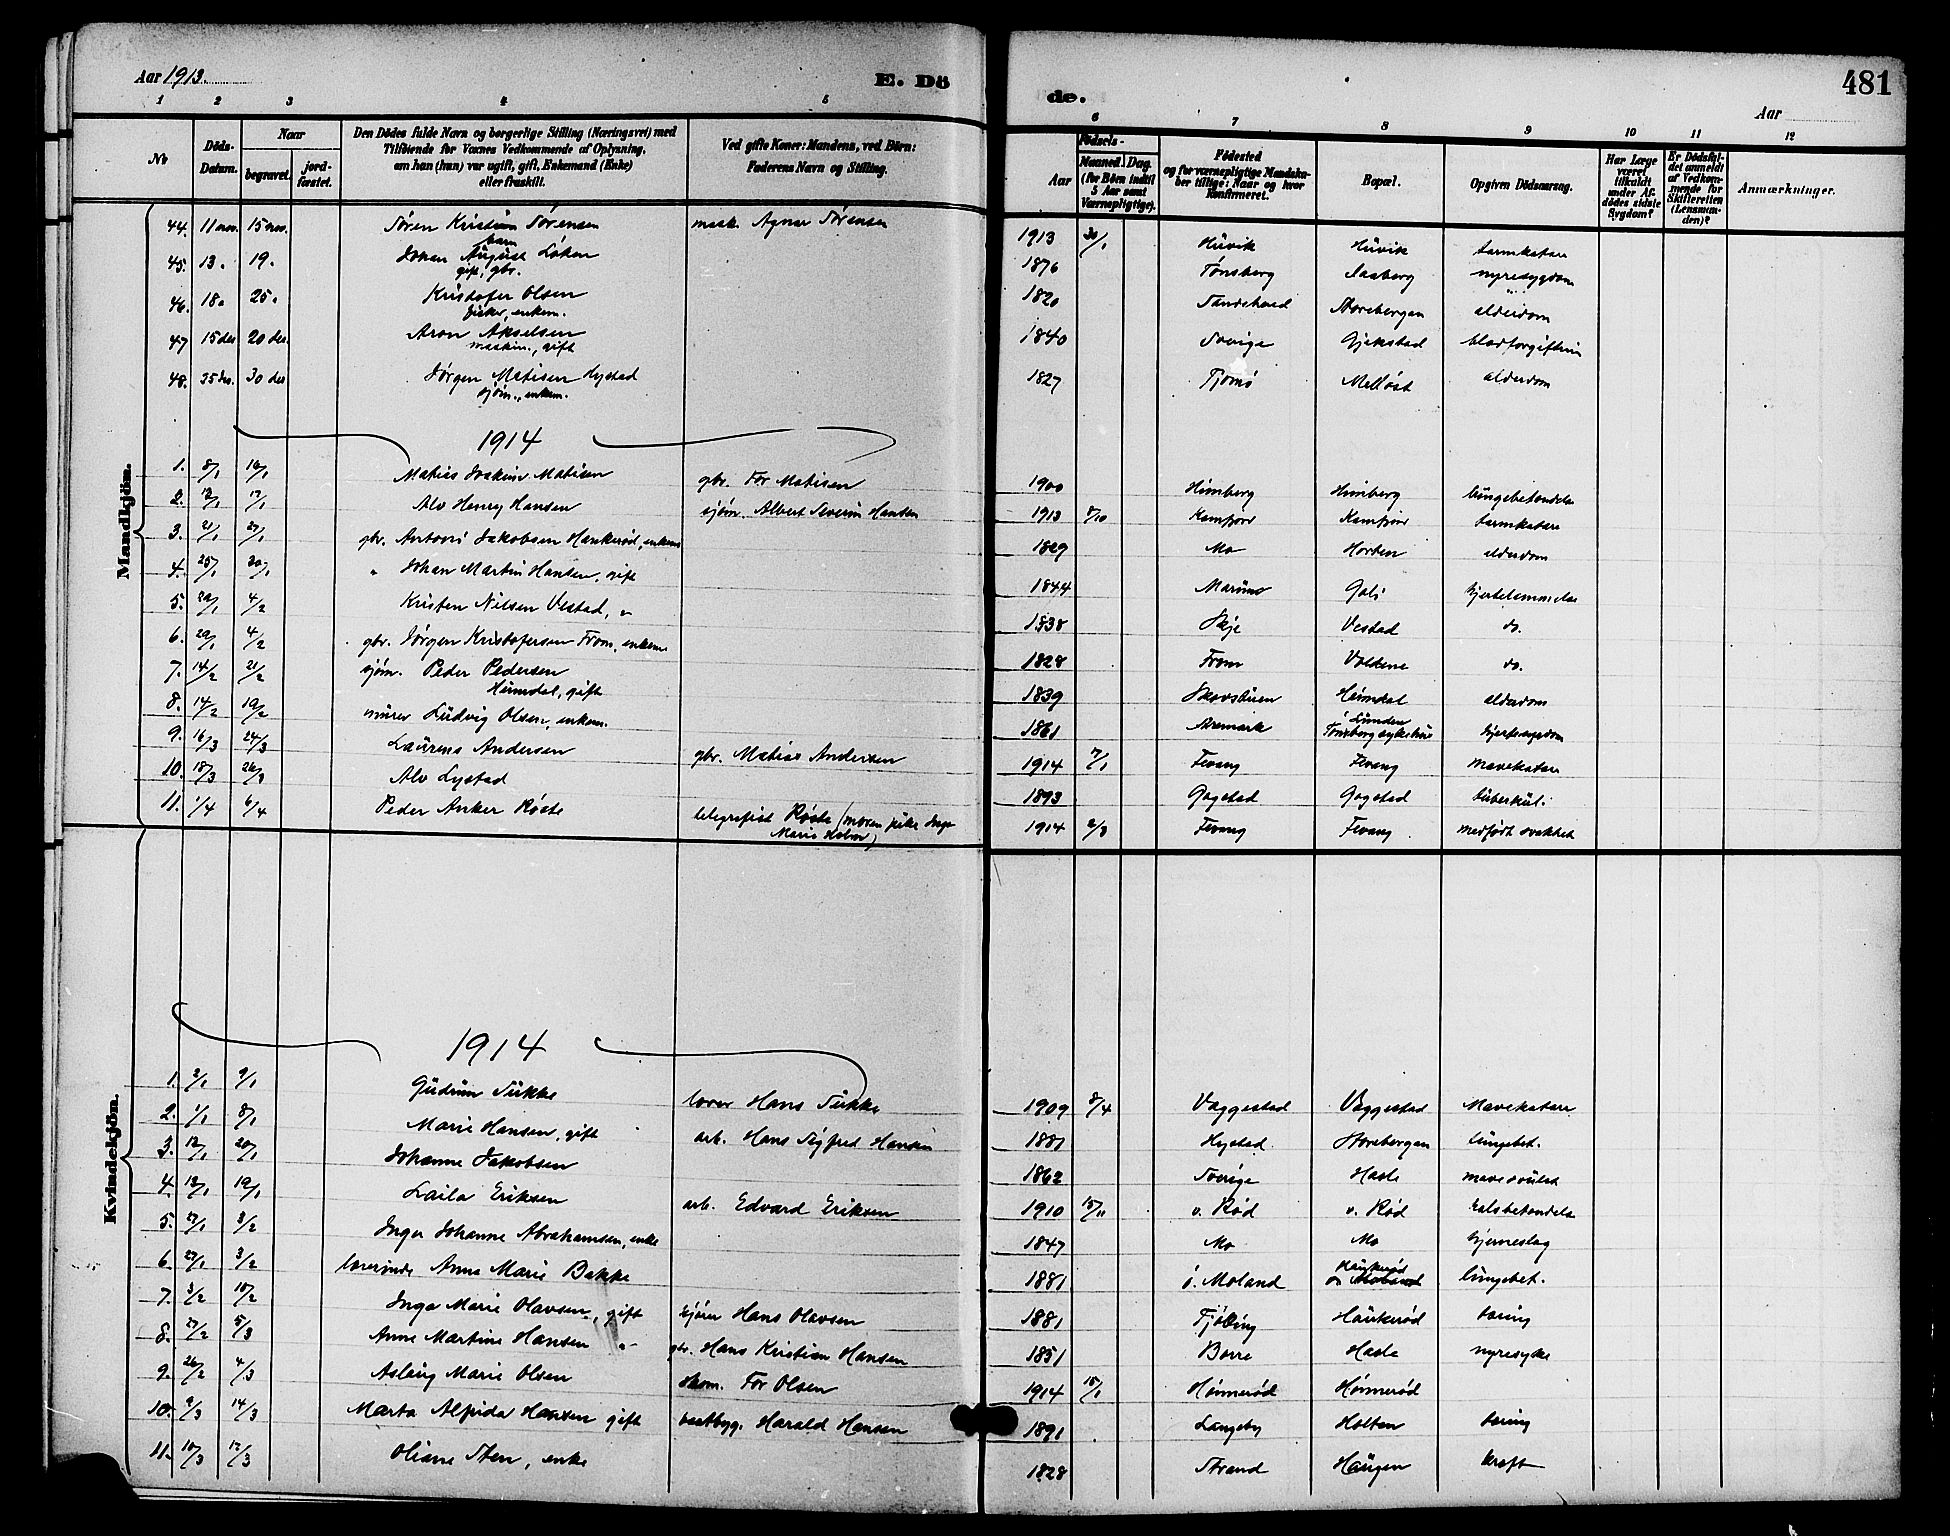 Aar 1913.
E. Dö
de.
481
Aar
1 2 3 4 5 6 7 8 9 10 11 12
No
Döds-Datum.
Naar
begravet.
jord-fæstet.
Den Dödes fulde Navn og borgerlige Stilling (Næringsvei) med
Tilföiende for Voxnes Vedkommende af Oplysning,
om han (hun) var ugift, gift, Enkemand (Enke)
eller fraskilt.
Ved gifte Koner: Mandens, ved Börn:
Faderens Navn og Stilling.
Födsels-
Aar
Maaned. Dag.
(for Börn indtil
5 Aar samt
Værnepligtige).
Födested
og for værnepligtige Mandska-
ber tillige: Naar og hvor
Konfirmeret.
Bopæl.
Opgiven Dödsaarsag.
Har Læge
været
tilkaldt
under Af-
dödes sidste
Sygdom?
Er Dödsfal-
det anmeldt
af Vedkom-
mende for
Skifteretten
(Lensman-
den)?
Anmærkninger.
Mandkjön.
44. 11 nov. 15 nov. Søren Kristian Sørensen mask. Agnar Sørensen 1913 30/1 Huvik Huvik tarmkatar
barn
45. 13. 19. Johan August Løken 1876 Tønsberg Aasberg nyresygdom
gift, gbr.
46. 18. 25. Kristofer Olsen 1820 Sandehered Storebergan alderdom
fisker, enkem.
47 15 des 20 des. Aron Akselsen 1840 Sverige Gjekstad blodforgiftnin
maskin., gift
48. 25 des. 30 des Jørgen Matisen Hystad 1827 Tjømø Melløst alderdom
sjøm., enkem.
1914
1. 8/1 16/1 Matias Joakim Matisen gbr. Tor Matisen 1900 Himberg Himberg lungebetændelse
2. 12/1 17/1 Alv Henry Hansen sjøm. Albert Severin Hansen 1913 8/10 Kamfjor Kamfjor tarmkatar
3. 21/1 27/1 gbr. Antoni Jakobsen Haukerød, enkem 1829 Mo Horten alderdom
4. 25/1 30/1 " Johan Martin Hansen, gift 1844 Marum Goli hjertelammelse
5. 29/1 4/2 Kristen Nilsen Vestad, " 1838 Skje Vestad do.
6. 29/1 4/2 gbr. Jørgen Kristofersen From, enkem. 1828 From Valdene do.
7. 14/2 21/2 sjøm. Peder Pedersen 1839 Skovstuen Heimdal alderdom
Heimdal, gift
8. 14/2 19/2 murer Ludvig Olsen, enkem. 1861 Aremark Lunden
Tønsberg sykehus hjertesygdom
9. 16/3 24/3 Laurens Andersen gbr. Matias Andersen 1914 7/1 Fevang Fevang mavekatar
10. 18/3 26/3 Alv Lystad 1893 Gogstad Gogstad tuberkul.
11. 1/4 6/4 Peder Anker Røste telegrafist Røste (moren pike Inga
Marie 1914 2/3 Fevang Fevang medfødt svakhet
Kvindekjön.
1914
1. 2/1 9/1 Gudrun Sukke lærer Hans Sukke 1909 8/4 Vaggestad Vaggestad Mavekatar
2. 1/1 8/1 Marie Hansen, gift arb. Hans Sigfred Hansen 1881 Hystad Storebergan lungebet.
3. 12/1 20/1 Johanne Jakobsen 1862 Sverige Hasle mavesvulst
4. 13/1 19/1 Laila Eriksen arb. Edvard Eriksen 1910 15/11 v. Rød v. Rød halsbetændelse
5. 27/1 3/2 Inger Johanne Abrahamsen, enke 1847 Mo Mo hjerneslag
6. 27/1 3/2 lærerinde Anna Marie Bakke 1881 ö. Moland Haukerød lungebet.
7. 3/2 10/2 Inga Marie Olavsen, gift sjøm Hans Olavsen 1881 Tjølling Haukerød tæring
8. 27/2 5/3 Anne Martine Hansen " gbr. Hans Kristian Hansen 1851 Borre Hasle nyresyke
9. 26/2 4/3 Aslaug Marie Olsen skom. Tor Olsen 1914 15/1 Hønnerød Hønnerød
10. 9/3 14/3 Marta Alfida Hansen gift baatbyg. Harald Hansen 1891 Langeby Holten tæring
11. 10/3 17/3 Oliane Sten, enke 1828 Strand Haugen kræft